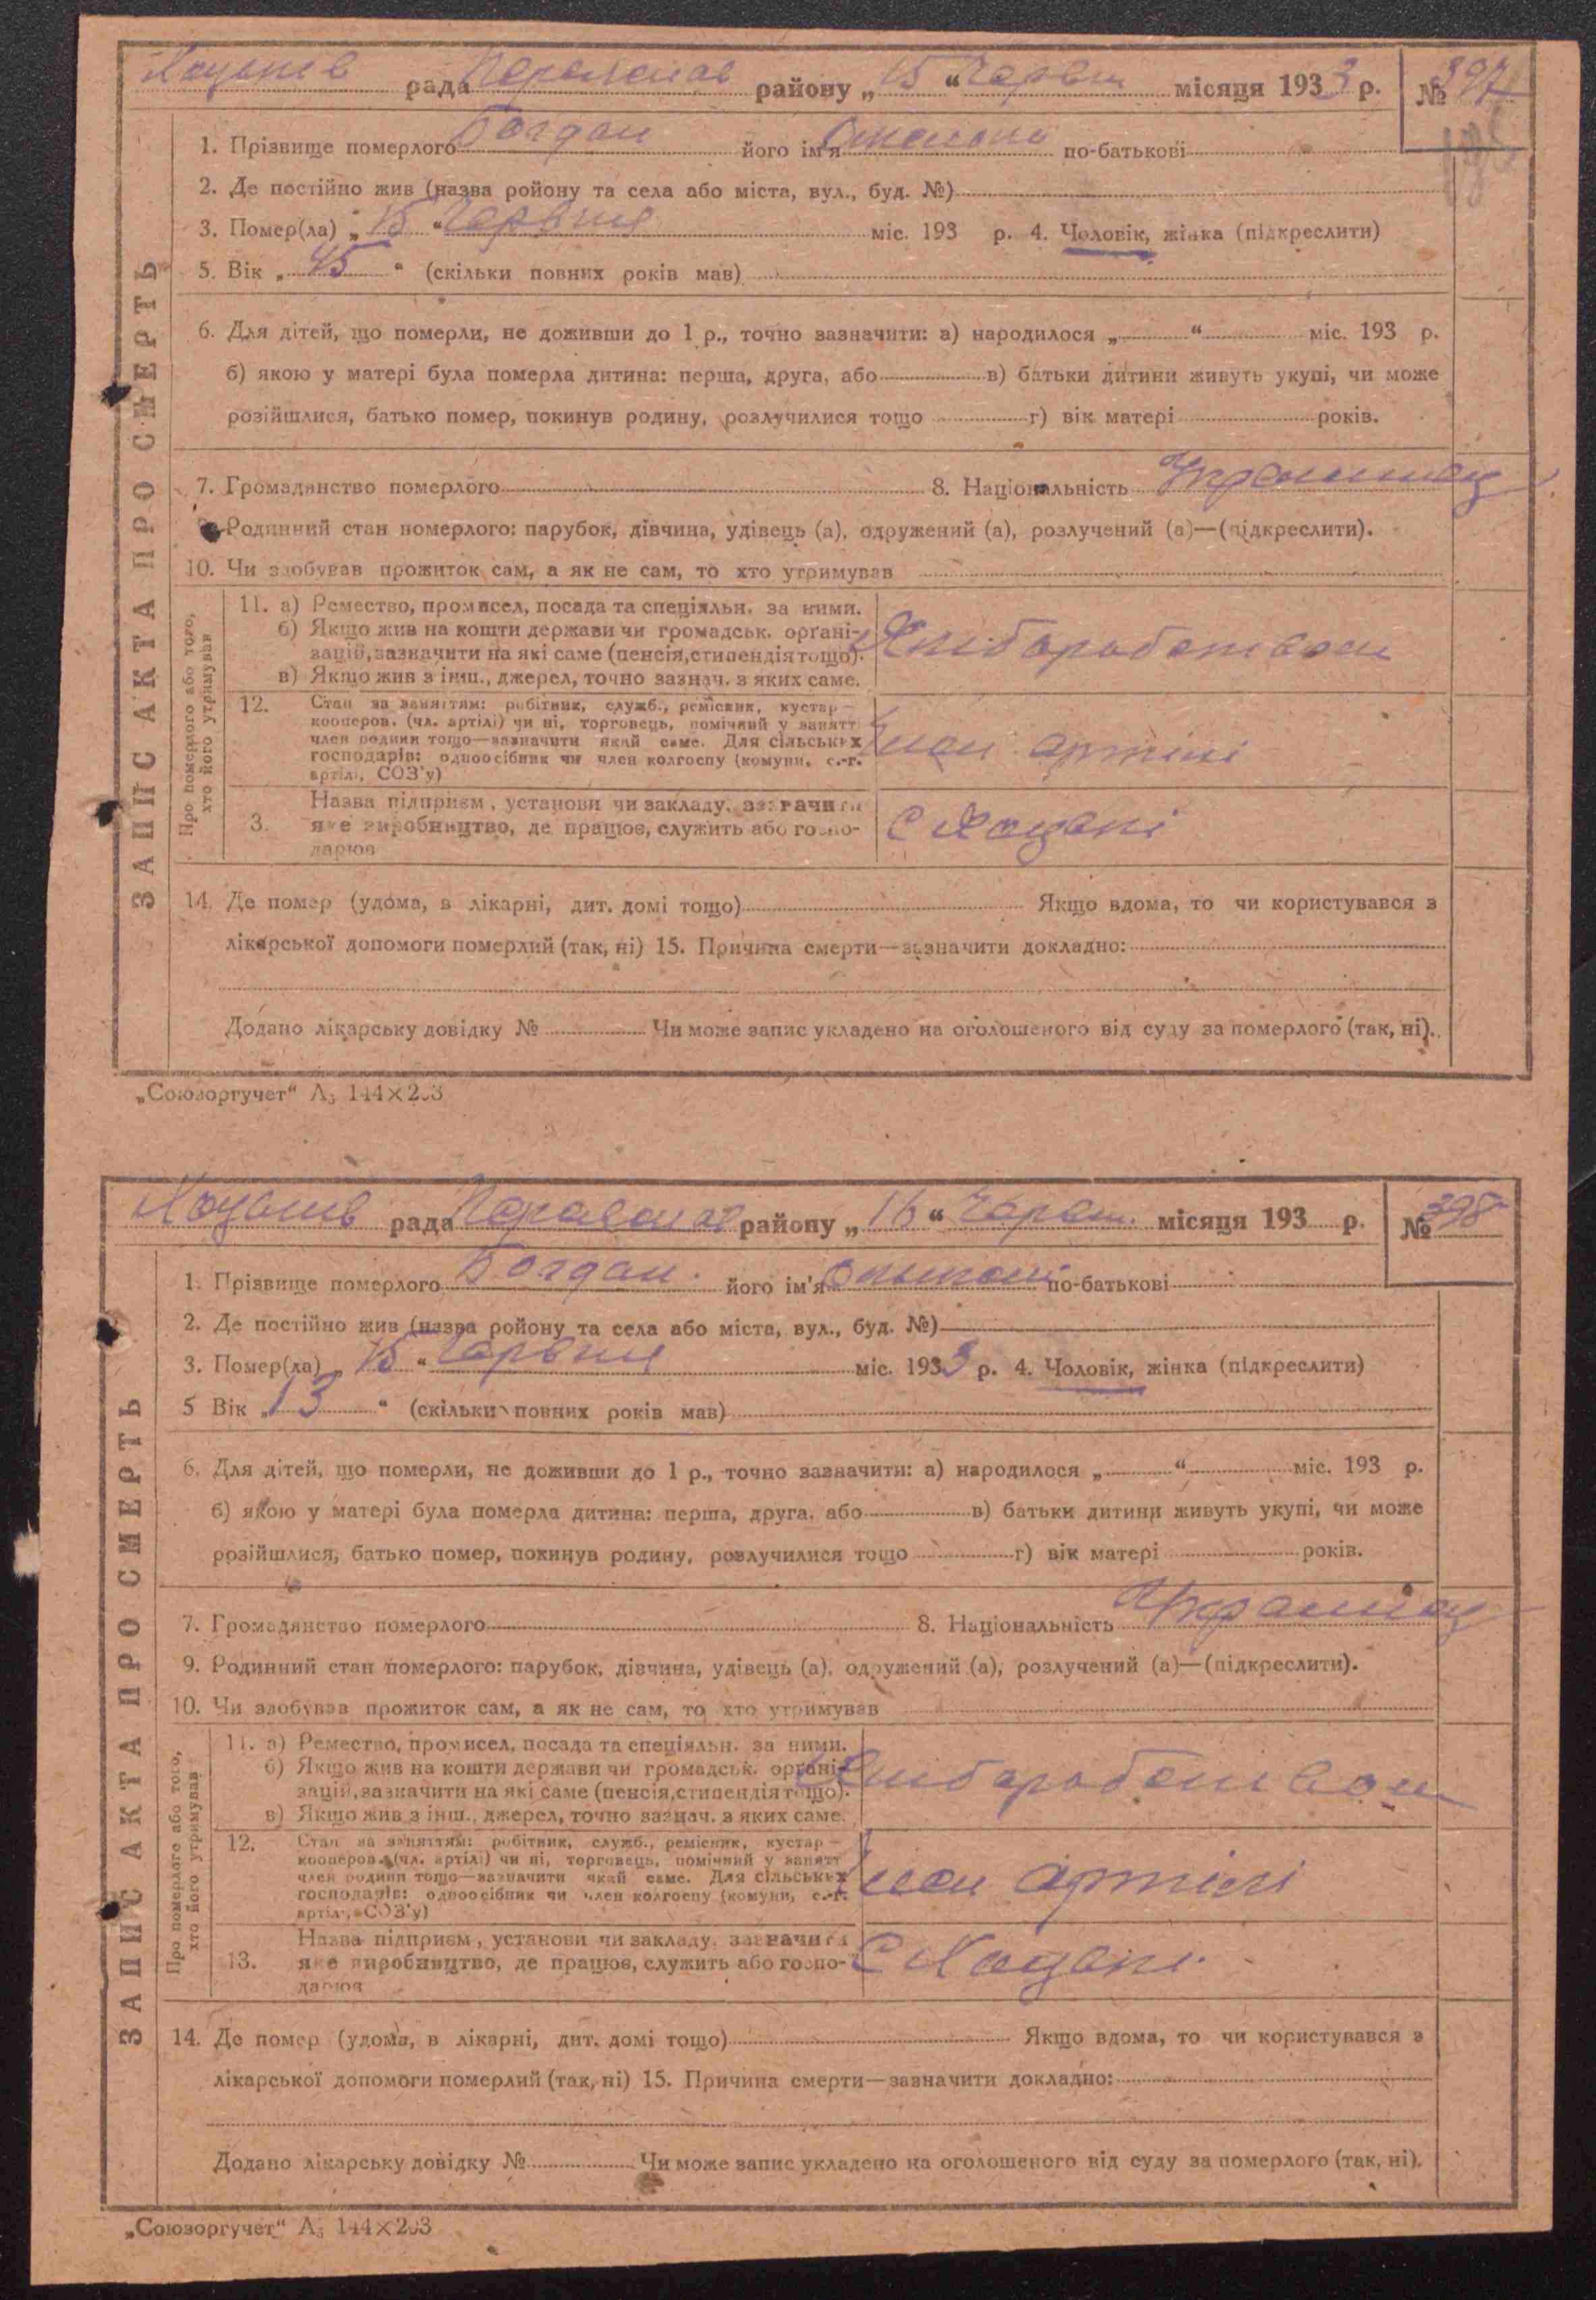 рада районy „15“ місяця 1933 р. № 397
1. Прізвище померлого Богдан його ім'я по-батькові
2. Де постійно жив (назва ройону та села або міста, вул., буд. №)
3. Помер(ла) „15“ Червня міс. 193 р. 4. Чоловік, жінка (підкреслити)
5. Вік „45“ (скільки повних років мав)
6. Для дітей, що померли, не доживши до 1 р., точно зазначити: а) народилося „ “ міс. 193 р.
б) якою у матері була померла дитина: перша, друга, або в) батьки дитини живуть укупі, чи може
розійшлися, батько помер, покинув родину, розлучилися тощо г) вік матері років.
7. Громадянство померлого 8. Національність Украинец
Родинний стан померлого: парубок, дівчина, удівець (а), одружений (а), розлучений (а)—(підкреслити).
10. Чи здобував прожиток сам, а як не сам, то хто утримував
ЗАПИС АКТА ПРО СМЕРТЬ
Про померлого або того,
хто його утримував
11. а) Ремество, промисел, посада та спеціяльн. за ними.
б) Якщо жив на кошти держави чи громадськ. орґані-
зацій, зазначити на які саме (пенсія, стипендія тощо).
в) Якщо жив з інш., джерел, точно зазнач. з яких саме.
12. Стан за заняттям: робітник, служб., ремісник, кустар—
кооперов. (чл. артілі) чи ні, торговець, помічний у занятт
член родини тощо—зазначити який саме. Для сільських
господарів: одноосібник чи член колгоспу (комуни, с.-г.
артілі, СОЗ'у)
член артілі
Назва підприєм, установи чи закладу, зазначити
3. яке виробництво, де працює, служить або госпо-
дарює
14. Де помер (удома, в лікарні, дит. домі тощо) Якщо вдома, то чи користувався з
лікарської допомоги померлий (так, ні) 15. Причина смерти—зазначити докладно:
Додано лікарську довідку № Чи може запис укладено на оголошеного від суду за померлого (так, ні).
„Союзоргучет“ А₅ 144×203
рада району „16“ місяця 193 р. № 398
1. Прізвище померлого Богдан його ім'я по-батькові
2. Де постійно жив (назва ройону та села або міста, вул., буд. №)
3. Помер(ла) „15“ Червня міс. 1933 р. 4. Чоловік, жінка (підкреслити)
5 Вік „13“ (скільки повних років мав)
6. Для дітей, що померли, не доживши до 1 р., точно зазначити: а) народилося „ “ міс. 193 р.
б) якою у матері була померла дитина: перша, друга, або в) батьки дитини живуть укупі, чи може
розійшлися, батько помер, покинув родину, розлучилися тощо г) вік матері років.
7. Громадянство померлого 8. Національність Украинец
9. Родинний стан померлого: парубок, дівчина, удівець (а), одружений (а), розлучений (а)—(підкреслити).
10. Чи здобував прожиток сам, а як не сам, то хто утримував
ЗАПИС АКТА ПРО СМЕРТЬ
Про померлого або того,
хто його утримував
11. а) Ремество, промисел, посада та спеціяльн. за ними.
б) Якщо жив на кошти держави чи громадськ. орґані-
зацій, зазначити на які саме (пенсія, стипендія тощо).
в) Якщо жив з інш., джерел, точно зазнач. з яких саме.
12. Стан за заняттям: робітник, служб., ремісник, кустар—
кооперов. (чл. артілі) чи ні, торговець, помічний у занятт
член родини тощо—зазначити який саме. Для сільських
господарів: одноосібник чи член колгоспу (комуни, с.-г.
артілі, СОЗ'у)
член артілі
Назва підприєм, установи чи закладу, зазначити
13. яке виробництво, де працює, служить або госпо-
дарює
14. Де помер (удома, в лікарні, дит. домі тощо) Якщо вдома, то чи користувався з
лікарської допомоги померлий (так, ні) 15. Причина смерти—зазначити докладно:
Додано лікарську довідку № Чи може запис укладено на оголошеного від суду за померлого (так, ні).
„Союзоргучет“ А₅ 144×203